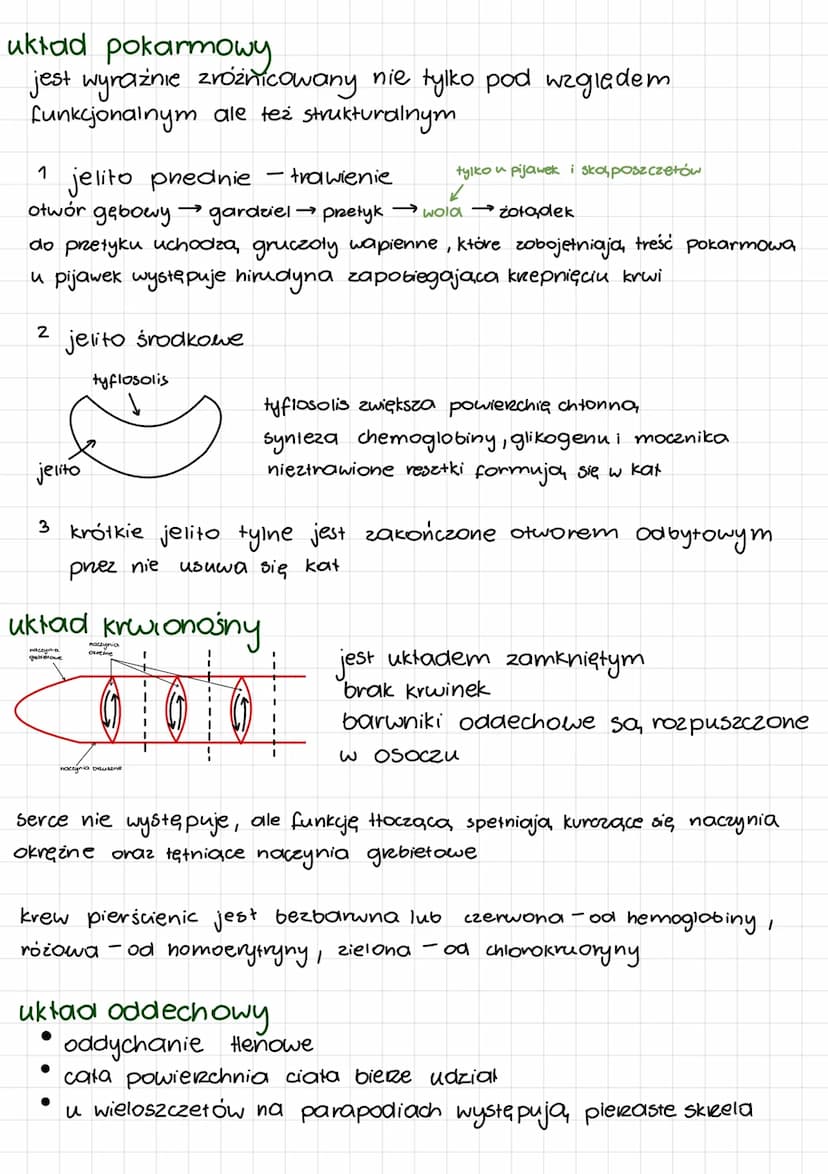 układ pokarmowy
jest wyraźnie zróżnicowany nie tylko pod względem
funkcjonalnym ale też strukturalnym
1 jelito przednie – trawienie
tylko u pijawek i skąposzczetów
otwór gębowy → gardziel → przełyk → wola → żołądek
do przełyku uchodzą gruczoły wapienne, które zobojętniają treść pokarmową
u pijawek występuje hirudyna zapobiegająca krzepnięciu krwi
2 jelito środkowe
tyflosolis
tyflosolis zwiększa powierzchię chłonną
synteza chemoglobiny, glikogenu i mocznika
jelito
nieztrawione resztki formują się w kał
3 krótkie jelito tylne jest zakończone otworem odbytowym
przez nie usuwa się kał
układ krwionośny
naczynia grzbietowe
naczynia okrężne
jest układem zamkniętym
brak krwinek
barwniki oddechowe są rozpuszczone
w osoczu
naczynia brzuszne
serce nie występuje, ale funkcję tłoczącą spełniają kurczące się naczynia
okrężne oraz tętniące naczynia grzbietowe
krew pierścienic jest bezbarwna lub czerwona – od hemoglobiny,
różowa – od homoerytryny, zielona – od chlorokruoryny
układ oddechowy
• oddychanie tlenowe
• cała powierzchnia ciała bierze udział
• u wieloszczetów na parapodiach występują pierzaste skrzela